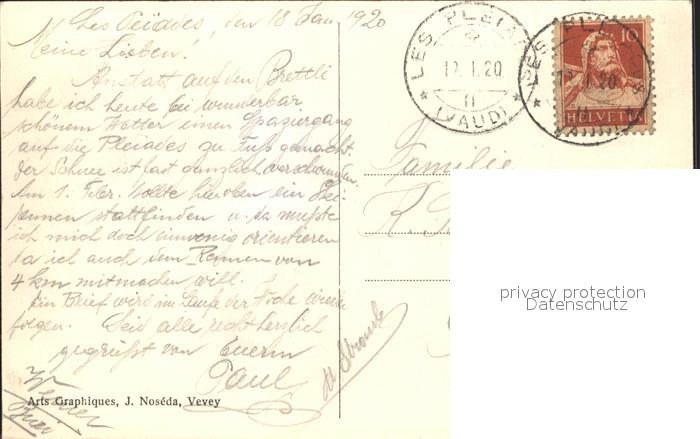 Les Pléiades, den 18 Jan 1920
Meine Lieben!
Anstatt auf den Brettli
habe ich heute bei wunderbar
schönem Wetter einen Spaziergang
auf die Pleiades zu Fuss gemacht.
der Schnee ist fast gänzlich verschwunden.
Am 1. Febr. sollte hieroben ein Ski-
rennen stattfinden u. da mußte
ich mich doch einwenig orientieren
da ich auch dem Rennen von
4 km mitmachen will.
Ein Brief wird im Laufe der Woche
folgen. Seid alle recht herzlich
gegrüsst von Euerm
Paul
Werner
Arts Graphiques, J. Noséda, Vevey
LES PLEIA
1.20
11
(VAUD)
LES PL
1.20
10
HELVETIA
Familie
privacy protection
Datenschutz